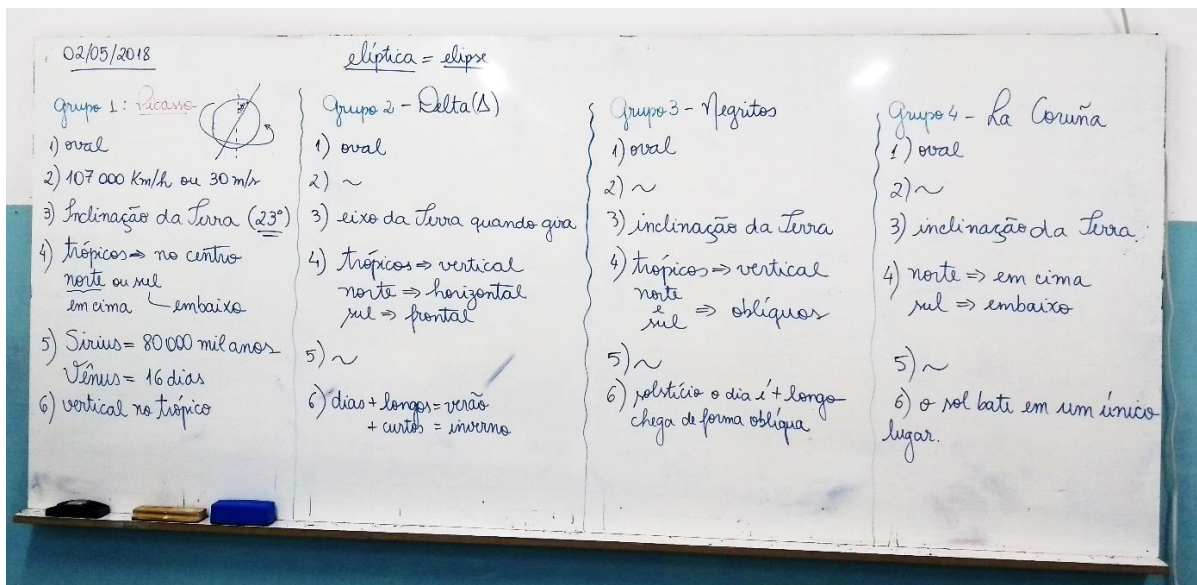 02/05/2018
elíptica = elipse
Grupo 1: Picasso
1) oval
2) 107 000 Km/h ou 30 m/s
3) Inclinação da Terra (23°)
4) trópicos ⇒ no centro
norte ou sul
em cima embaixo
5) Sirius = 80 000 mil anos
Vênus = 16 dias
6) vertical no trópico
Grupo 2 - Delta (Δ)
1) oval
2) ~
3) eixo da Terra quando gira
4) trópicos ⇒ vertical
norte ⇒ horizontal
sul ⇒ frontal
5) ~
6) dias + longos = verão
+ curtos = inverno
Grupo 3 - Negritos
1) oval
2) ~
3) inclinação da Terra
4) trópicos ⇒ vertical
norte
e
sul ⇒ oblíquos
5) ~
6) solstício o dia é + longo
chega de forma oblíqua
Grupo 4 - La Coruña
1) oval
2) ~
3) inclinação da Terra.
4) norte ⇒ em cima
sul ⇒ embaixo
5) ~
6) o sol bate em um único
lugar.